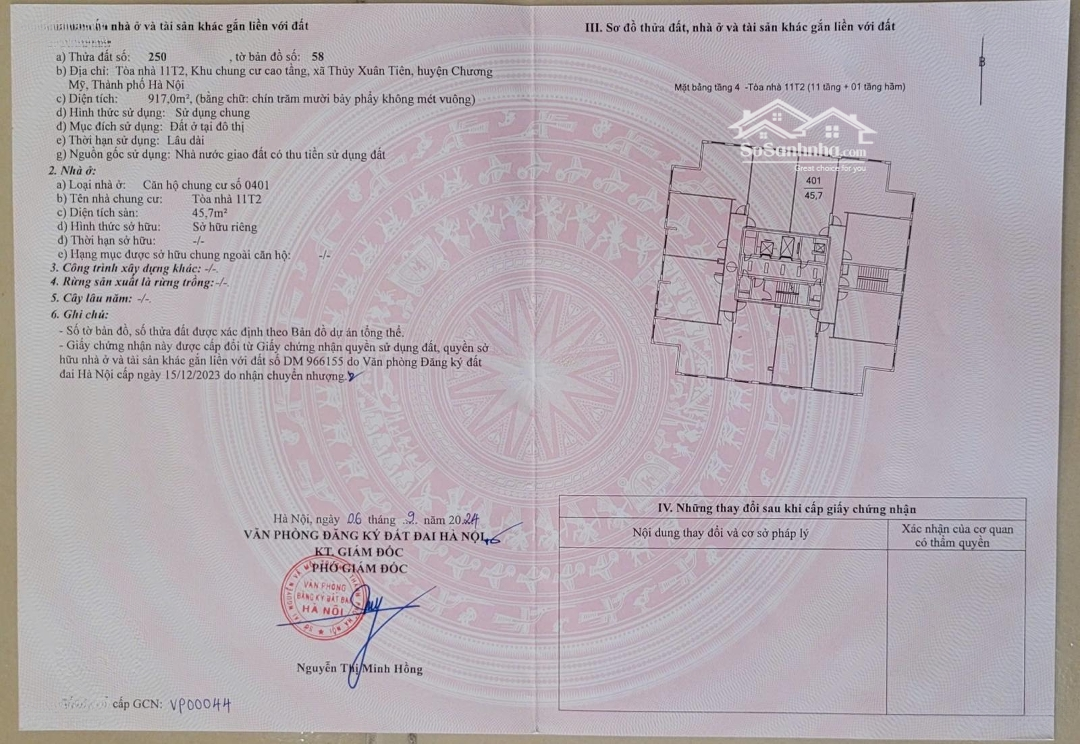 nhà ở và tài sản khác gắn liền với đất
a) Thửa đất số: 250 , tờ bản đồ số: 58
b) Địa chỉ: Tòa nhà 11T2, Khu chung cư cao tầng, xã Thủy Xuân Tiên, huyện Chương
Mỹ, Thành phố Hà Nội
c) Diện tích: 917,0m², (bằng chữ: chín trăm mười bảy phẩy không mét vuông)
d) Hình thức sử dụng: Sử dụng chung
đ) Mục đích sử dụng: Đất ở tại đô thị
e) Thời hạn sử dụng: Lâu dài
g) Nguồn gốc sử dụng: Nhà nước giao đất có thu tiền sử dụng đất
2. Nhà ở:
a) Loại nhà ở: Căn hộ chung cư số 0401
b) Tên nhà chung cư: Tòa nhà 11T2
c) Diện tích sàn: 45,7m²
d) Hình thức sở hữu: Sở hữu riêng
đ) Thời hạn sở hữu: -/-
e) Hạng mục được sở hữu chung ngoài căn hộ: -/-
3. Công trình xây dựng khác: -/-
4. Rừng sản xuất là rừng trồng:-/-
5. Cây lâu năm: -/-
6. Ghi chú:
- Số tờ bản đồ, số thửa đất được xác định theo Bản đồ dự án tổng thể.
- Giấy chứng nhận này được cấp đổi từ Giấy chứng nhận quyền sử dụng đất, quyền sở
hữu nhà ở và tài sản khác gắn liền với đất số DM 966155 do Văn phòng Đăng ký đất
đai Hà Nội cấp ngày 15/12/2023 do nhận chuyển nhượng.
Hà Nội, ngày 06 tháng 9 năm 2024
VĂN PHÒNG ĐĂNG KÝ ĐẤT ĐAI HÀ NỘI
KT. GIÁM ĐỐC
PHÓ GIÁM ĐỐC
VĂN PHÒNG
ĐĂNG KÝ ĐẤT ĐAI
HÀ NỘI
Nguyễn Thị Minh Hồng
cấp GCN: VP00044
III. Sơ đồ thửa đất, nhà ở và tài sản khác gắn liền với đất
B
Mặt bằng tầng 4 -Tòa nhà 11T2 (11 tầng + 01 tầng hầm)
SoSanhnha.com
Great choice for you
401
45,7
IV. Những thay đổi sau khi cấp giấy chứng nhận
Nội dung thay đổi và cơ sở pháp lý
Xác nhận của cơ quan
có thẩm quyền